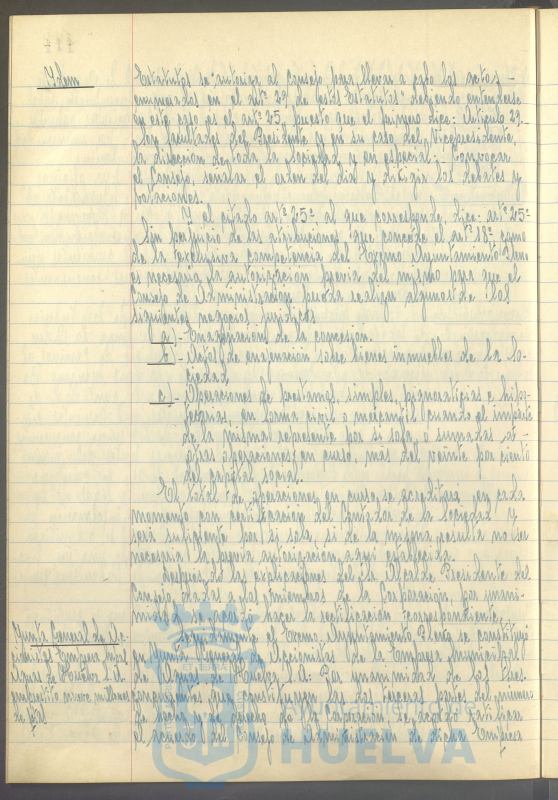 Idem
Estatutos se autoriza al Consejo para llevar a cabo los actos -
enumerados en el artº 29 de estos Estatutos" debiendo entenderse
en este caso es el artº 25, puesto que el primero dice: Artículo 29.-
Son facultades del Presidente y en su caso del Vicepresidente,
la dirección de toda la Sociedad y en especial; Convocar
el Consejo, señalar el orden del día y dirigir los debates y
votaciones.
Y el citado artº 25º, al que corresponde, dice: artº 25º
Sin perjuicio de las atribuciones que concede el artº 18º como
de la exclusiva competencia del Excmo Ayuntamiento Pleno
es necesaria la autorización previa del mismo para que el
Consejo de Administración pueda realizar algunos de los
siguientes negocios jurídicos
a).- Enajenación de la concesión.
b).- Actos de enajenación sobre bienes inmuebles de la So-
ciedad
c).- Operaciones de préstamos, simples, pignoraticias e hipo-
tecarias, en forma civil o mercantil cuando el importe
de la misma represente por si sola, o sumadas a
otras operaciones en curso, más del veinte por ciento
del capital social.
El total de operaciones en curso se acreditará en cada
momento con certificación del Contador de la Sociedad y
será suficiente por si sola, si de la misma resulta no ser
necesaria la previa autorización aquí establecida.
Después de las explicaciones del Sr. Alcalde Presidente del
Consejo, dadas a los miembros de la Corporación, por unani-
midad se acordó hacer la rectificación correspondiente.
Junta General de Ac-
cionistas Empresa Mpal
Aguas de Huelva S.A.
empréstito nueve millones
de ptas
Seguidamente el Excmo. Ayuntamiento Pleno se constituyó
en Junta General de Accionistas de la Empresa Municipal
de Aguas de Huelva S.A. Por unanimidad de los Sres.
concurrentes, que constituyen las dos terceras partes del número
de hecho y de derecho de la Corporación, se acordó ratificar
el acuerdo del Consejo de Administración de dicha Empresa
Ayuntamiento de
HUELVA